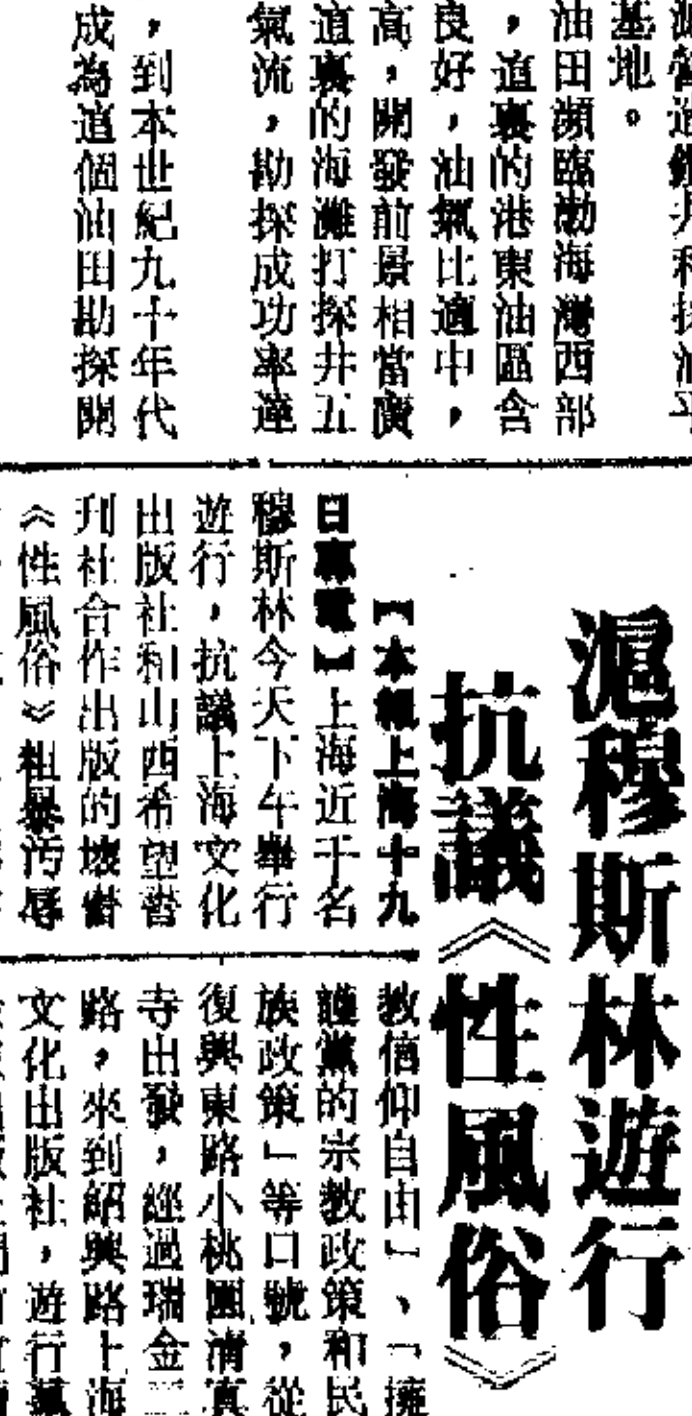 基地。
油田瀕臨渤海灣西部
，這裏的港東油區含
良好，油氣比適中，
高，開發前景相當廣
道裏的海灘打探井五
氣流，勘探成功率達
，到本世紀九十年代
成為這個油田勘探開
滬穆斯林遊行
抗議《性風俗》
【本報上海十九
日專電】上海近千名
穆斯林今天下午舉行
遊行，抗議上海文化
出版社和山西希望書
刊社合作出版的壞書
《性風俗》粗暴污辱
教信仰自由」、「擁
護黨的宗教政策和民
族政策」等口號，從
復興東路小桃園清真
寺出發，經過瑞金二
路，來到紹興路上海
文化出版社，遊行